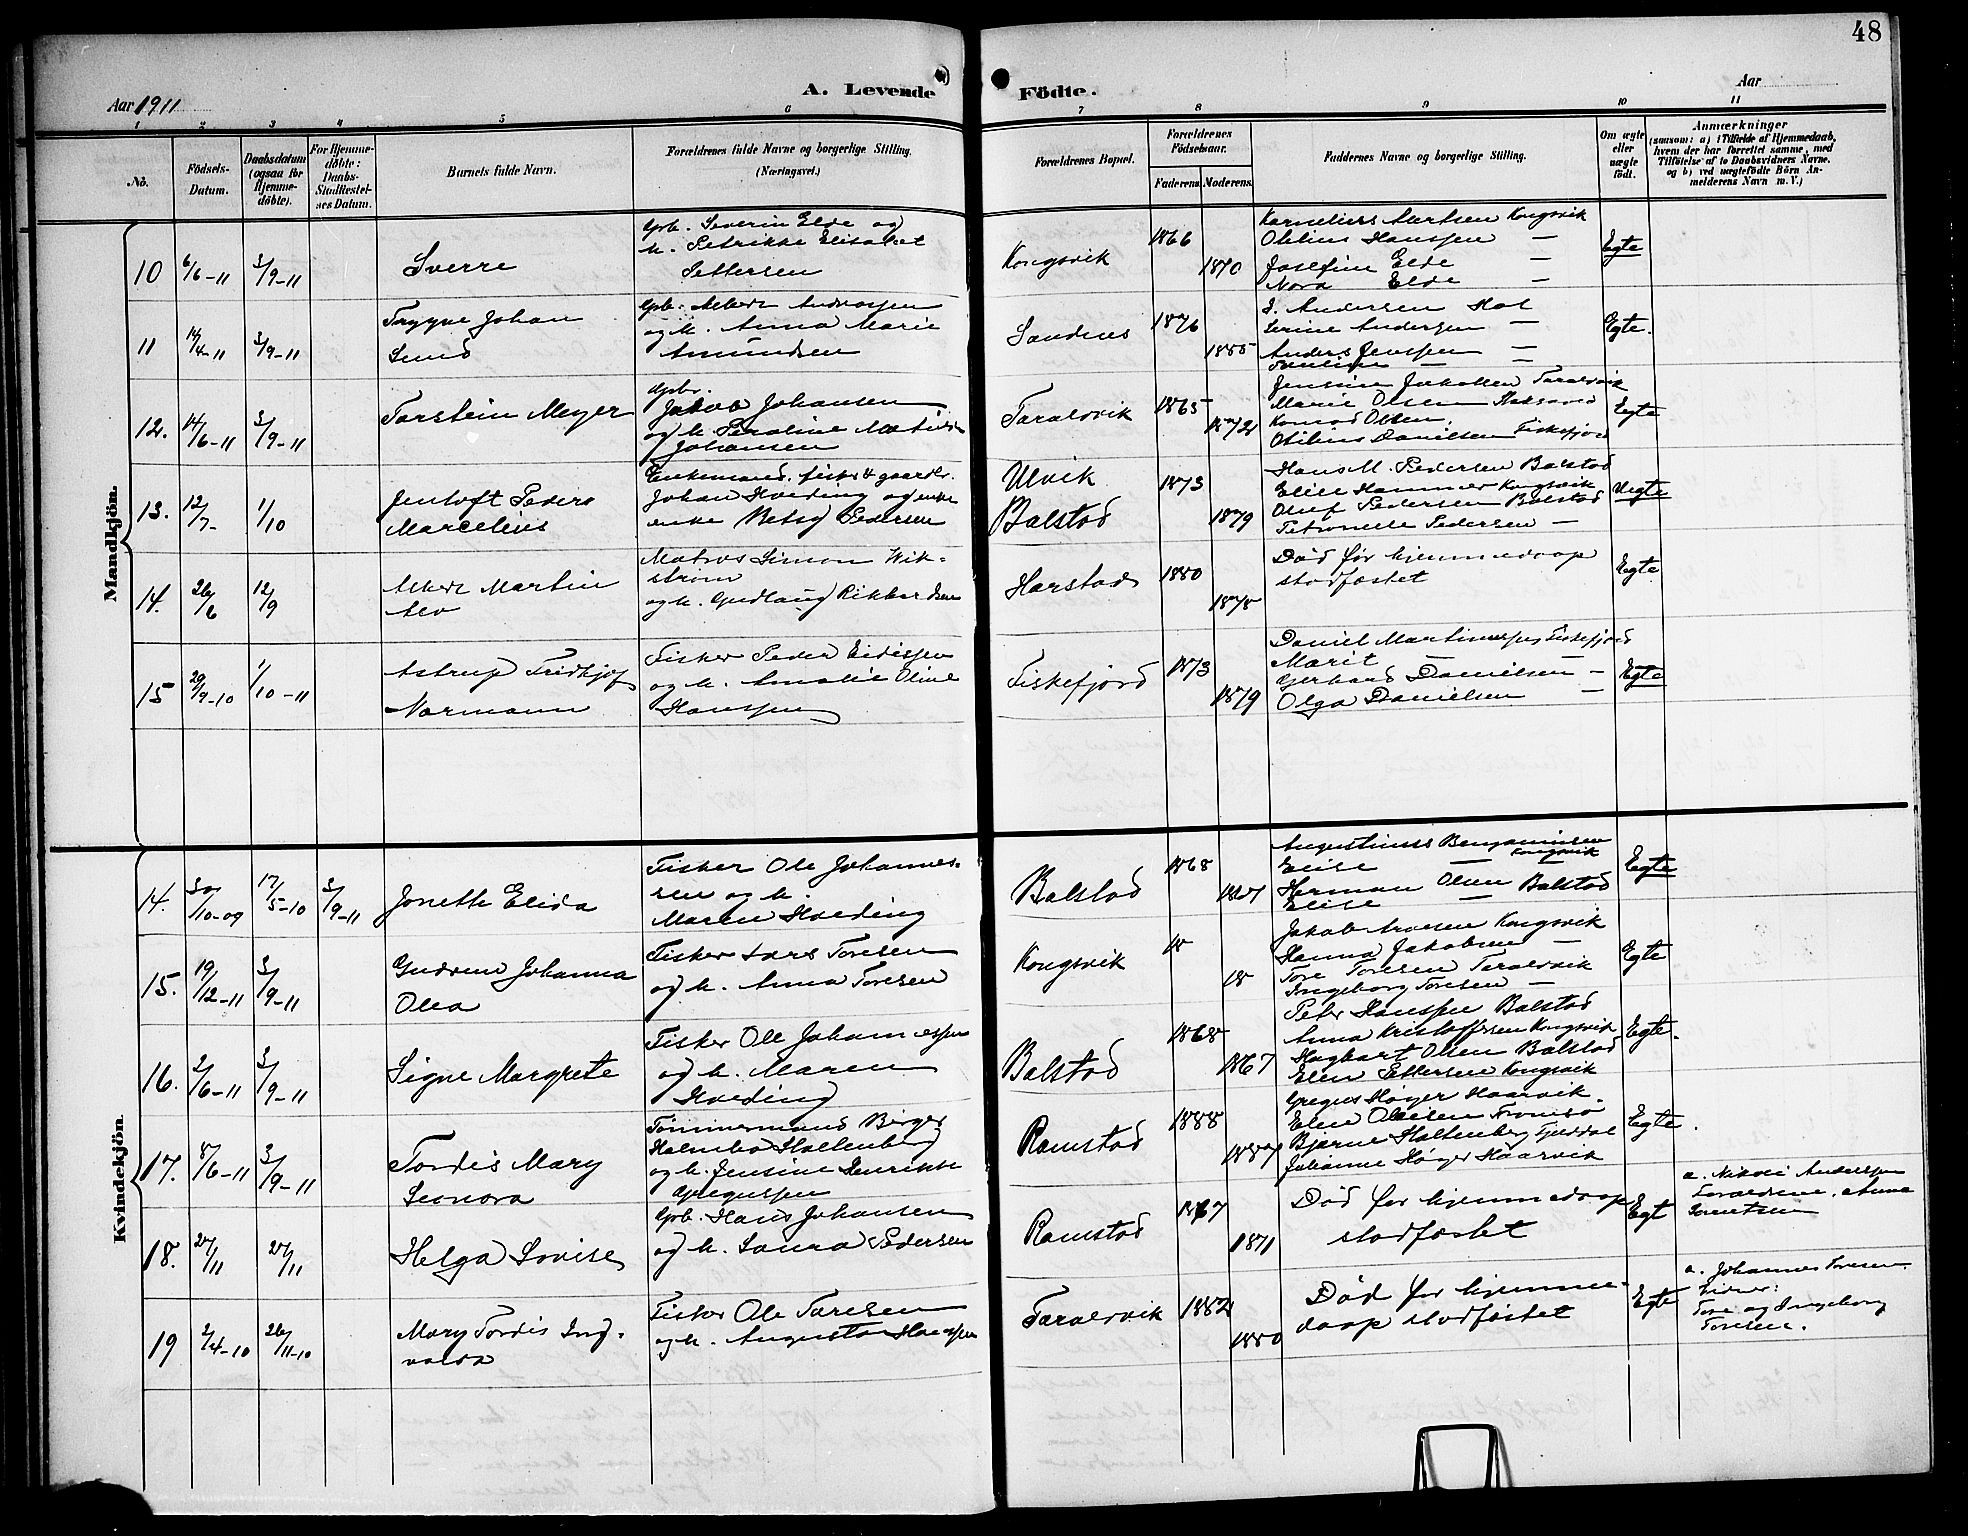 48
Aar 1911
A. Levende
Födte.
Aar
1 2 3 4 5 6 7 8 9 10 11
No.
Födsels-
Datum.
Daabsdatum
(ogsaa for
Hjemme-
döbte).
For Hjemme-
döbte:
Daabs-
Stadfæstel-
ses Datum.
Barnets fulde Navn.
Forældrenes fulde Navne og borgerlige Stilling.
(Næringsvei.)
Forældrenes Bopæl.
Forældrenes
Födselsaar.
Faderens.
Moderens.
Faddernes Navne og borgerlige Stilling.
Om ægte
eller
uægte
födt.
Anmærkninger
(saasom: a) i Tilfælde af Hjemmedaab,
hvem der har forrettet samme, med
Tilföielse af to Daabsvidners Navne.
og b) ved uægtefödte Börn An-
melderens Navn m. V.)
Mandkjön.
10 6/6-11 3/9-11
Sverre
gbr. Severin Elde og
h. Petrikke Elisabet
Settersen
Kongsvik
1866
1870
Kornelius Kongsvik
Otilius Hanssen —
Josefine Elde —
Nora Elde —
Egte
11 14/4-11 3/9-11
Trygve Johan
Lund
gbr. Albert Andreassen
og h. Anna Marie
Amundsen
Sandnes
1876
1885
J. Andersen Hol
Serine Andersen —
Anders Jenssen —
Egte.
12. 14/6-11 3/9-11
Torstein Meyer
gbr.
Jakob Johansen
og h. Peroline
Johansen
Taraldvik
1865
1872
Jensine Jakobsen Taraldvik
Marie Olsen
Konrad Olsen.
Otilius Danielsen Fiskefjord
Egte
13. 12/7- 1/10
Jentoft Peder
Marcelius
Enkemand, fisker & gaardbr.
Johan Hveding og
enke Betsy Pedersen
Ulvik
Balstad
1873
1879
Hans M. Pedersen Balstad
Elise Hammer Kongsvik
Oluf Pedersen Balstad
Petronelle Pedersen —
Uegte
14. 26/6 12/9
Albert Martin
Alv
Matros Simon Wik-
strøm
og h. Gudlaug Rikkardsen
Harstad
1880
1878
Død før hjemmedaap
stadfæstet
Egte
15 29/9-10 1/10-11
Astrup Fridtjof
Normann
Fisker Peder Eidissen
og h. Amalie Oline
Hanssen
Fiskefjord
1873
1879
Daniel Martinussen Fiskefjord
Marit — —
Gerhard Danielsen —
Olga Danielsen —
Egte
Kvindekjön.
14. 30/10-09 17/5-10 3/9-11
Jonette Elida
Fisker Ole Johannes-
sen og h.
Maren Hveding
Balstad
1868
1867
Augustinus Benjaminsen
Elise — Kongsvik
Herman Olsen Balstad
Elise — —
Egte
15. 19/12-11 3/9-11
Gudrun Johanna
Olea
Fisker Lars Toresen
og h. Anna Toresen
Kongsvik
18
18
Jakob Kongsvik
Hanna Jakobsen —
Tore Toresen Taraldvik
Ingeborg Toresen —
Egte
16. 2/6-11 3/9-11
Signe Margrete
Fisker Ole Johannessen
og h. Maren
Hveding
Balstad
1868
1867
Peter Hanssen Balstad
Anna Kristoffersen Kongsvik
Hagbart Olsen Balstad
Elen Settersen Kongsvik
Egte.
17. 8/6-11 3/9-11
Tordis Mary
Leonora
Tømmermand Birger
Holmbo Holtenberg
og h. Jensine Henrikke
Gregussen
Ramstad
1888
1887
Gregus Høyer Haarvik.
Elen Olsen Tromsø
Bjarne Holtenberg Fjelddal
Johanne Høyer Haarvik
Egte.
18. 27/11 27/11
Helga Lovise
Gbr. Hans Johansen
og h. Laura Pedersen
Ramstad
1867
1871
Død før hjemmedaap
stadfæstet
Egt
a. Nikolai Anderssen
Forældrene. Anna
19 2/4-10 26/11-10
Mary Tordis Ing-
valda
Fisker Ole Toresen
og h. Augusta Hanssen
Taraldvik
1882
1880
Død før hjemme-
daap stadfæstet
Egte
a. Johannes Toresen.
Vidner:
Tore og Ingeborg
Toresen.